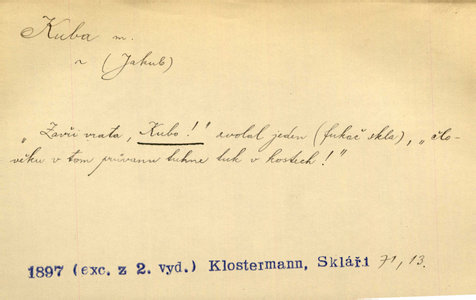 Kuba m.
r (Jakub)
„Zavři vrata, Kubo!" zvolal jeden (fukač skla), „člo-
věku v tom průvanu tuhne tuk v kostech!"
1897 (exc. z 2. vyd.) Klostermann, Skláři 71, 13.